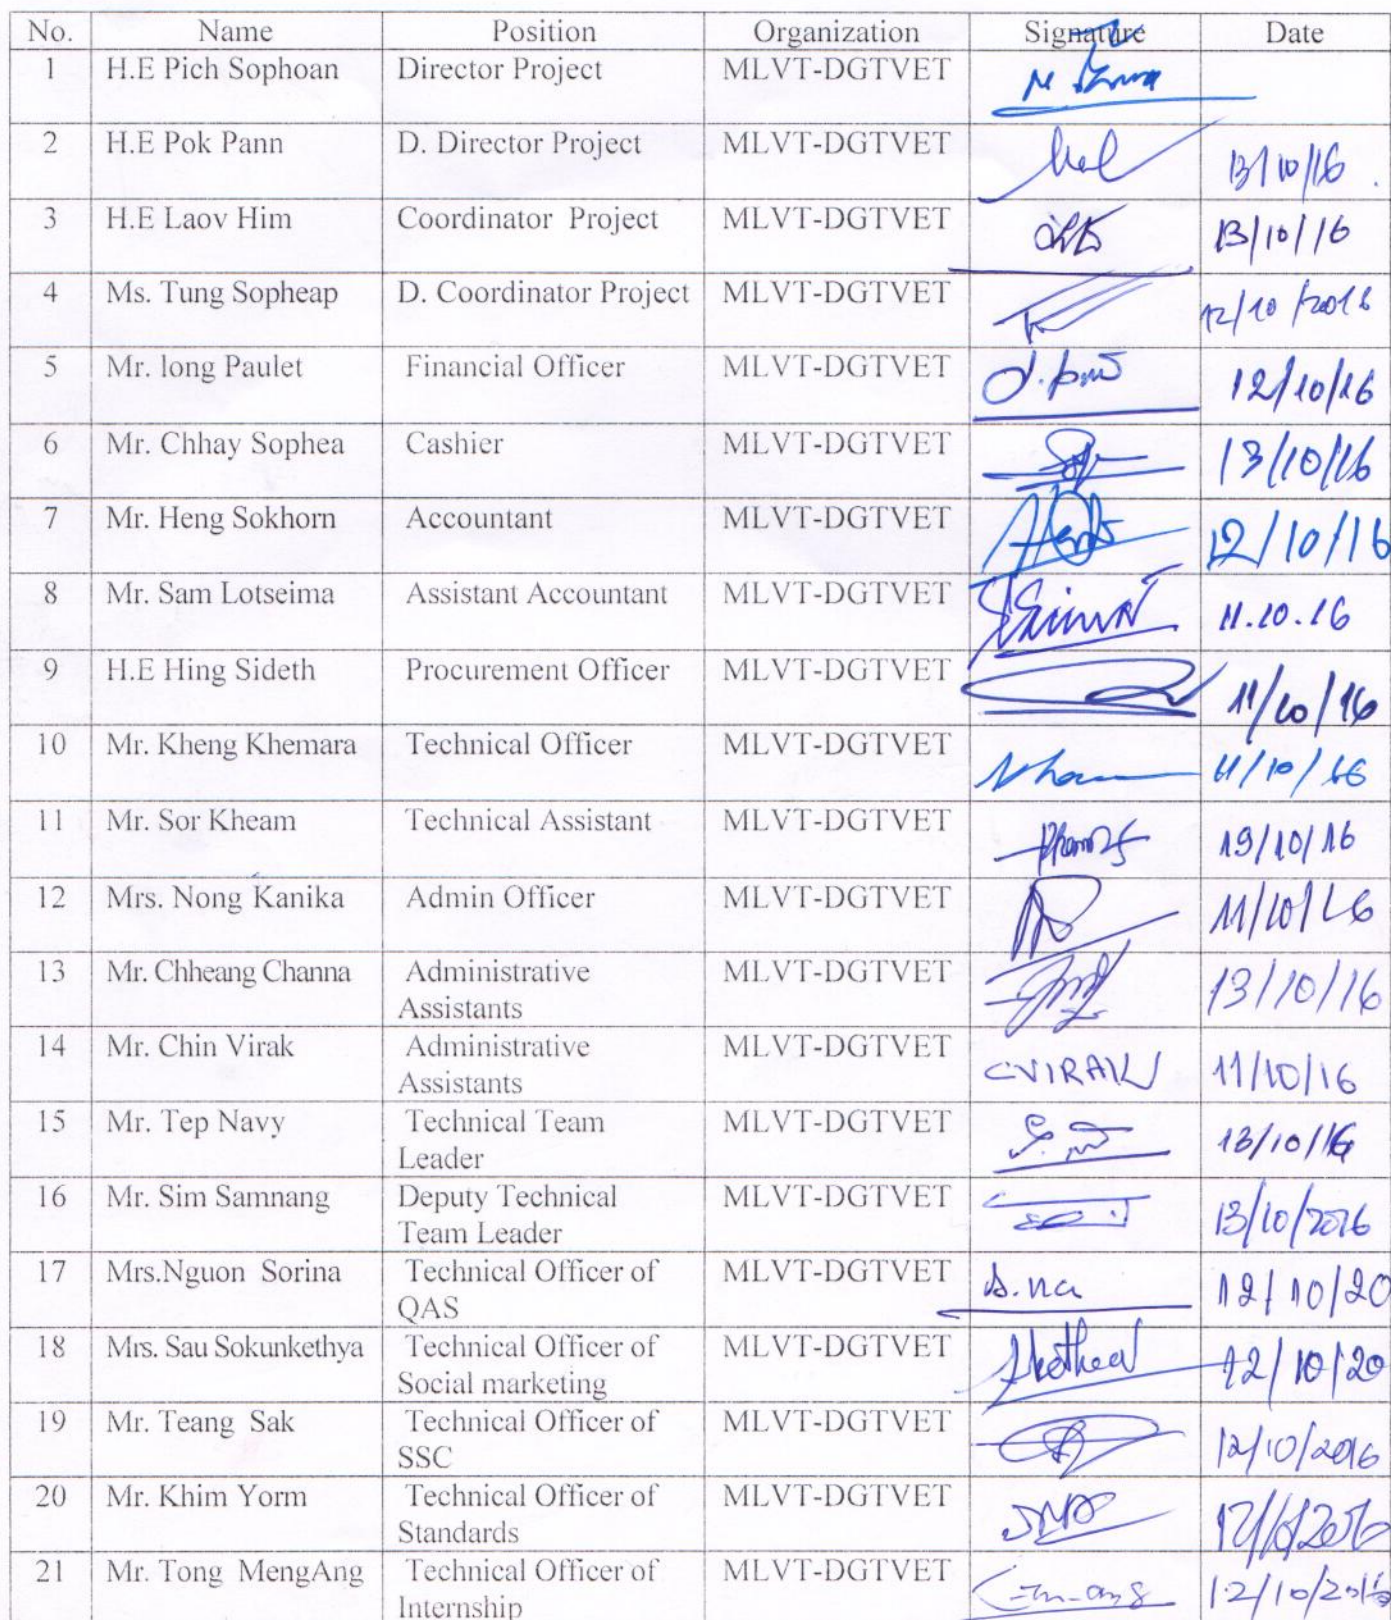 No. Name Position Organization Signature Date
1 H.E Pich Sophoan Director Project MLVT-DGTVET
2 H.E Pok Pann D. Director Project MLVT-DGTVET 13/10/16
3 H.E Laov Him Coordinator Project MLVT-DGTVET 13/10/16
4 Ms. Tung Sopheap D. Coordinator Project MLVT-DGTVET 12/10/2016
5 Mr. long Paulet Financial Officer MLVT-DGTVET 12/10/16
6 Mr. Chhay Sophea Cashier MLVT-DGTVET 13/10/16
7 Mr. Heng Sokhorn Accountant MLVT-DGTVET 12/10/16
8 Mr. Sam Lotseima Assistant Accountant MLVT-DGTVET 11.10.16
9 H.E Hing Sideth Procurement Officer MLVT-DGTVET 11/10/16
10 Mr. Kheng Khemara Technical Officer MLVT-DGTVET 11/10/16
11 Mr. Sor Kheam Technical Assistant MLVT-DGTVET 19/10/16
12 Mrs. Nong Kanika Admin Officer MLVT-DGTVET 11/10/16
13 Mr. Chheang Channa Administrative MLVT-DGTVET 13/10/16
Assistants
14 Mr. Chin Virak Administrative MLVT-DGTVET CVIRAK 11/10/16
Assistants
15 Mr. Tep Navy Technical Team MLVT-DGTVET 13/10/16
Leader
16 Mr. Sim Samnang Deputy Technical MLVT-DGTVET 13/10/2016
Team Leader
17 Mrs.Nguon Sorina Technical Officer of MLVT-DGTVET s.na 12/10/20
QAS
18 Mrs. Sau Sokunkethya Technical Officer of MLVT-DGTVET 12/10/20
Social marketing
19 Mr. Teang Sak Technical Officer of MLVT-DGTVET 12/10/2016
SSC
20 Mr. Khim Yorm Technical Officer of MLVT-DGTVET 12/10/2016
Standards
21 Mr. Tong MengAng Technical Officer of MLVT-DGTVET 12/10/2016
Internship